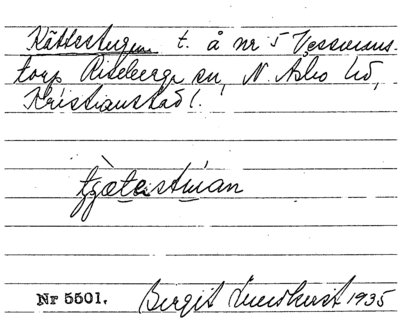 Kättestugan t. å nr 5 Vessmans-
torp Riseberga sn, N. Åsbo hd,
Kristianstad l.
Nr 5501. Birgit Lundkvist 1935